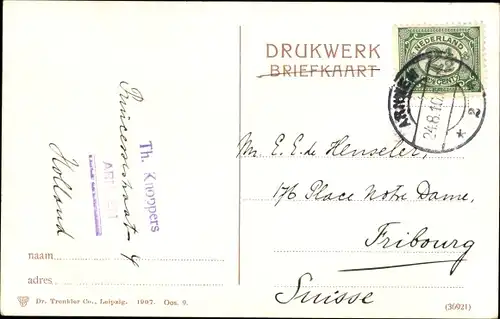 DRUKWERK
BRIEFKAART
NEDERLAND
2½
CENT
ARNHEM
24.8.10.
* 2
Mr. E. E. de Henseler,
176 Place Notre Dame,
Fribourg
Suisse
Th. Knoppers
ARNHEM
Princessestraat 4
Holland
naam
adres
Dr. Trenkler Co., Leipzig. 1907. Oos. 9.
(36921)